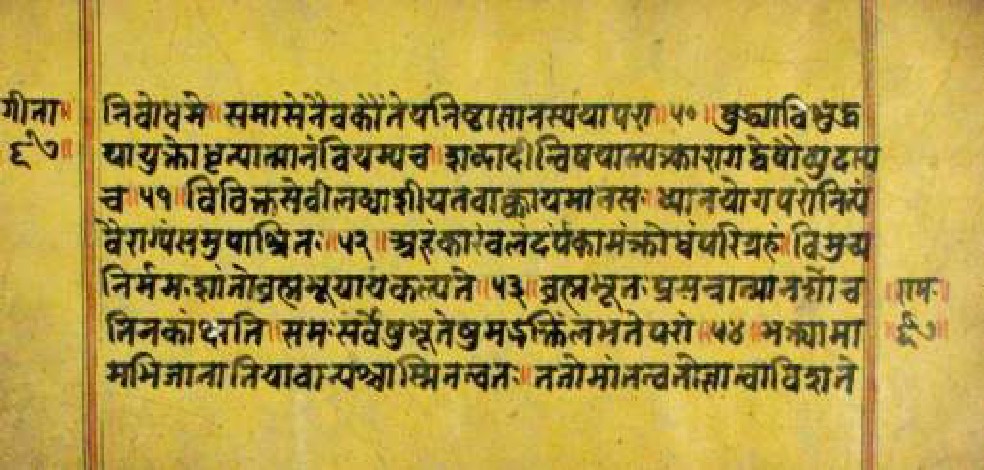 गीता॥
६७॥
निबोधमे॥ समासेनैवकौंतेयनिष्ठाज्ञानस्ययापरा॥ ५०॥ बुद्ध्याविशुद्ध
यायुक्तोधृत्यात्मानंनियम्यच॥ शब्दादीन्विषयांस्त्यक्त्वारागद्वेषौव्युदस्य
च॥ ५१॥ विविक्तसेवीलघ्वाशीयतवाक्कायमानसः॥ ध्यानयोगपरोनित्यं
वैराग्यंसमुपाश्रितः॥ ५२॥ अहंकारंबलंदर्पंकामंक्रोधंपरिग्रहं॥ विमुच्य
निर्ममःशांतोब्रह्मभूयायकल्पते॥ ५३॥ ब्रह्मभूतःप्रसन्नात्मानशोच
तिनकांक्षति॥ समःसर्वेषुभूतेषुमद्भक्तिंलभतेपरां॥ ५४॥ भक्त्यामा
मभिजानातियावान्यश्चास्मितत्वतः॥ ततोमांतत्वतोज्ञात्वाविशते
॥रामः॥
॥६७॥